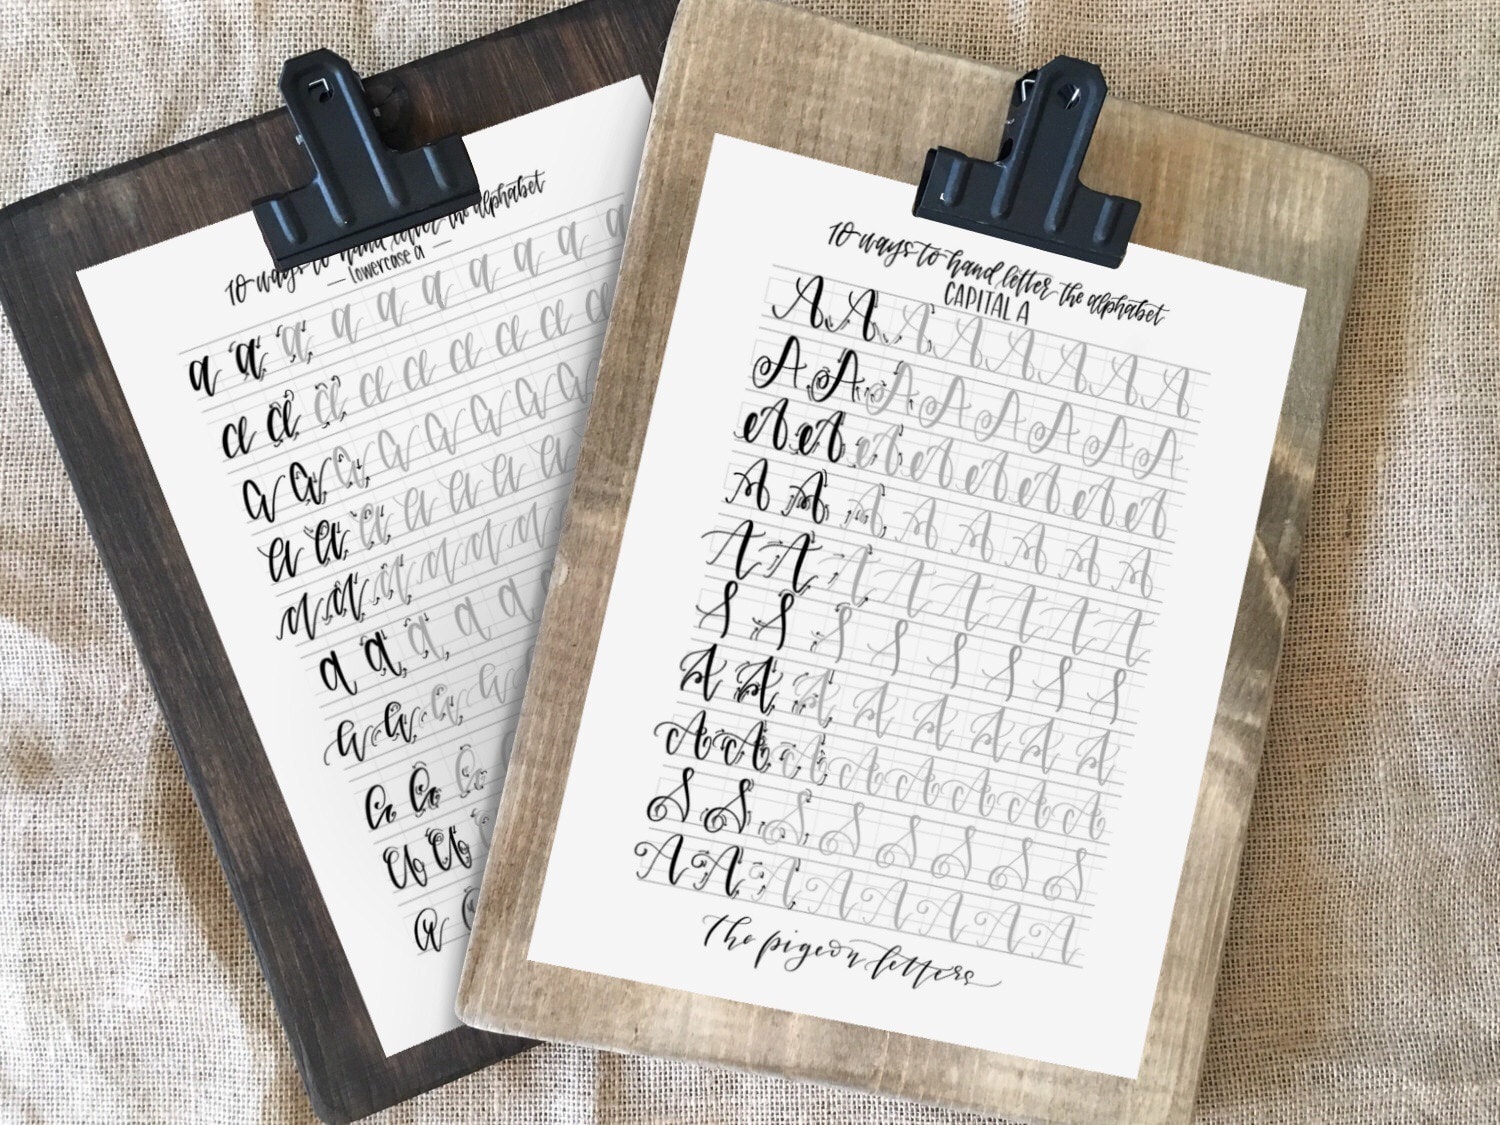 10 ways to hand letter the alphabet
— lowercase a —
a a a a a a a a a
a a a a a a a a a
a a a a a a a a
a a a a a a a
a a a a a a
a a a a a
a a a a
a a a
a a
a
10 ways to hand letter the alphabet
CAPITAL A
A A A A A A A A
A A A A A A A A
A A A A A A A A
A A A A A A A A
A A A A A A A A
A A A A A A A A
A A A A A A A A
A A A A A A A A
A A A A A A A A
A A A A A A A A
the pigeon letters